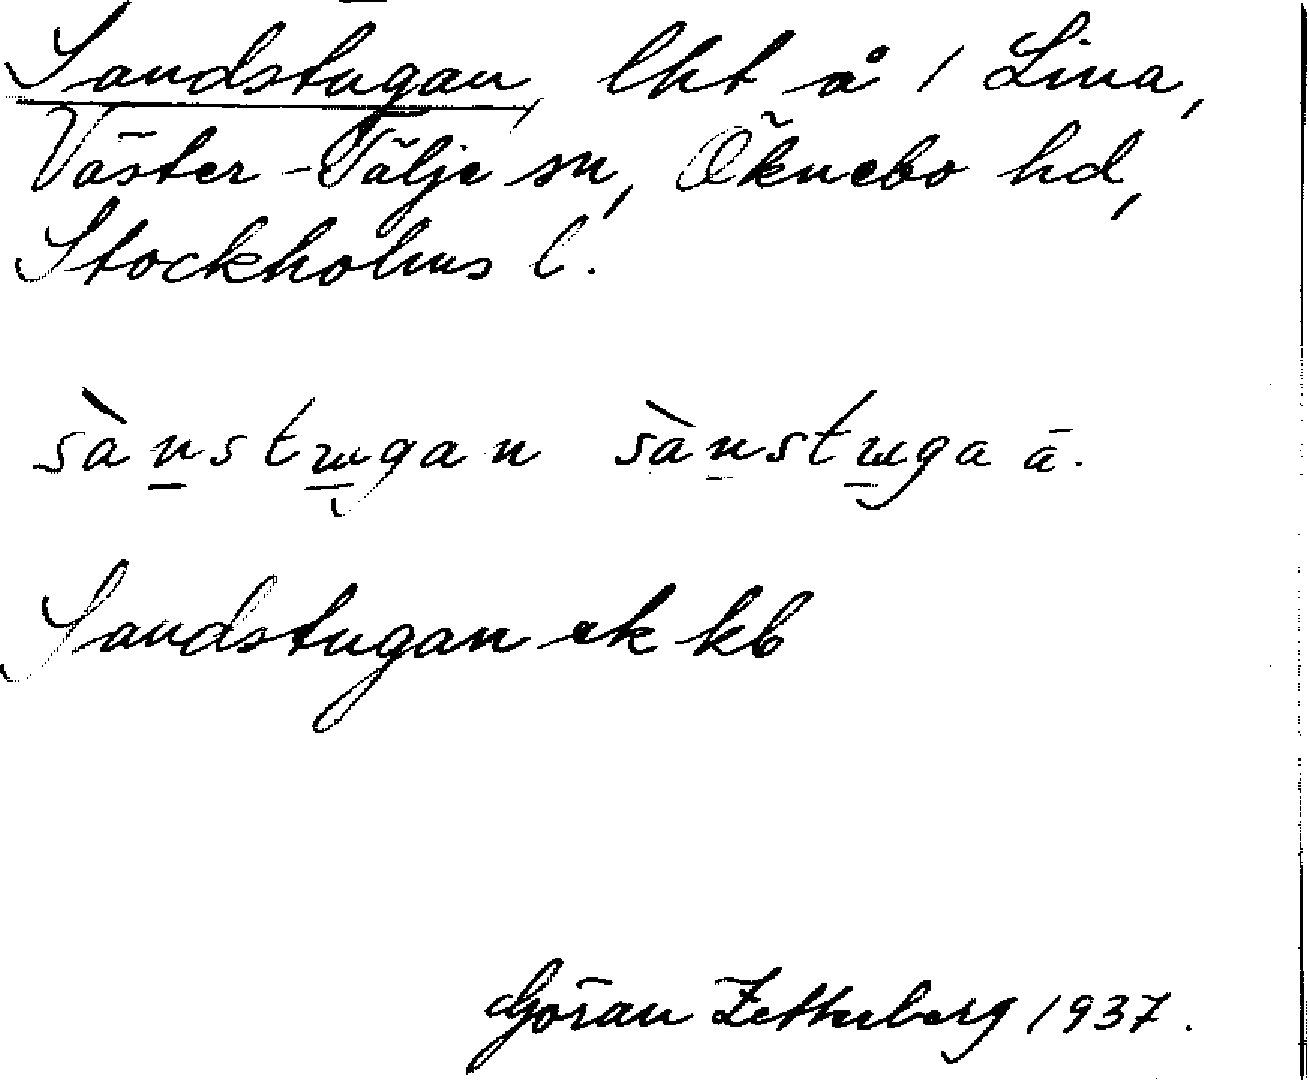 Sandstugan, lht å / Lina,
Väster-Tälje sn, Öknebo hd,
Stockholms l.
sànstɯgan sànstɯga ä.
Sandstugan ek kb
Göran Zetterberg 1937.